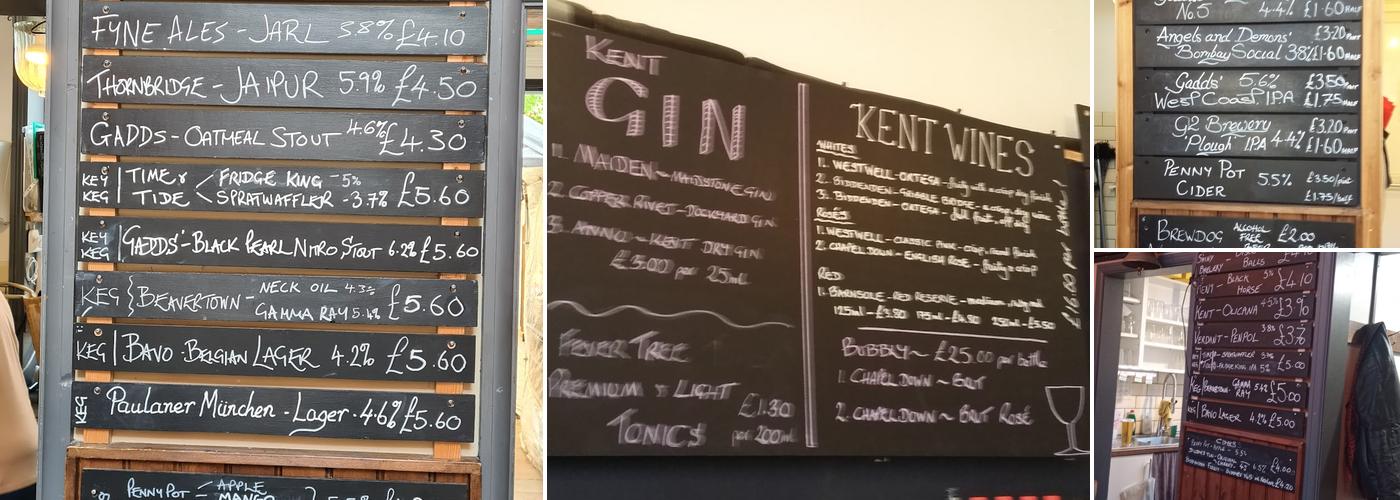 FYNE ALES - JARL 3.8% £4.10
THORNBRIDGE - JAIPUR 5.9% £4.50
GADDS - OATMEAL STOUT 4.6% £4.30
KEY KEG TIME & TIDE < FRIDGE KING - 5%
SPRATWAFFLER - 3.7% £5.60
KEY KEG GADDS' - BLACK PEARL NITRO STOUT 6.2% £5.60
KEG } BEAVERTOWN - NECK OIL 4.3%
GAMMA RAY 5.4% £5.60
KEG | BAVO - BELGIAN LAGER 4.2% £5.60
KEG Paulaner München - Lager - 4.6% £5.60
PENNY POT - APPLE
MANGO
KENT
GIN
1. MAIDEN ~ MAIDSTONE GIN
2. COPPER RIVET - DOCKYARD GIN
3. ANNO ~ KENT DRY GIN
£3.00 per 25ml
FEVER TREE
PREMIUM & LIGHT
TONICS
£1.30
per 200ml
KENT WINES
WHITES
1. WESTWELL - ORTEGA - fruity with a crisp dry finish
2. BIDDENDEN - GRIBBLE BRIDGE - a crisp dry wine
3. BIDDENDEN - ORTEGA - full fruit, off dry
ROSÉS
1. WESTWELL - CLASSIC PINK - crisp, round finish
2. CHAPEL DOWN - ENGLISH ROSÉ - fruity & crisp
RED
1. BARNSOLE - RED RESERVE - medium
125ml - £3.80 175ml - £4.80 250ml - £5.50
£16.00 per bottle!
BUBBLY ~ £25.00 per bottle
1. CHAPEL DOWN ~ BRUT
2. CHAPEL DOWN ~ BRUT ROSÉ
No.5 4.4% £1.60 HALF
Angels and Demons' £3.20 PINT
Bombay Social 3.8% £1.60 HALF
Gadds' 5.6% £3.50 PINT
West Coast IPA £1.75 HALF
G2 Brewery £3.20 PINT
Plough IPA 4.4% £1.60 HALF
PENNY POT CIDER 5.5% £3.50/pint
£1.75/half
BREWDOG ALCOHOL FREE £2.00
BREWERY BALLS
KENT - BLACK HORSE 5% £4.10
KENT - OLICANA 4.5% £3.90
VERDANT - PENPOL 3.8% £3.70
£5.00
KEG BEAVERTOWN - GAMMA RAY 5.4% £5.00
KEG BAVO LAGER 4.2% £5.00
CIDERS
£4.00
£4.20